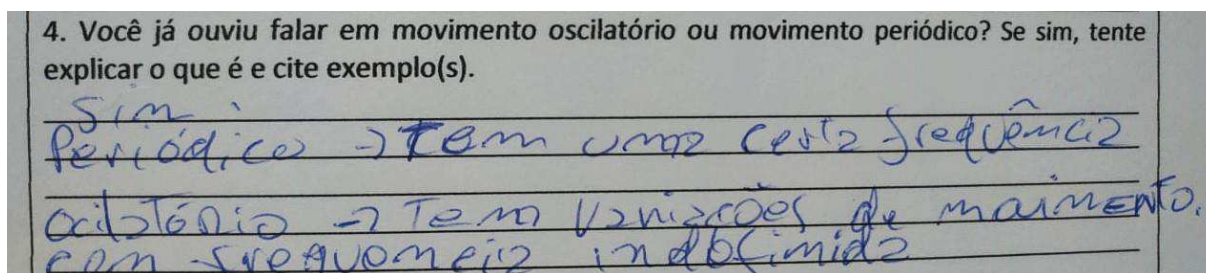 4. Você já ouviu falar em movimento oscilatório ou movimento periódico? Se sim, tente
explicar o que é e cite exemplo(s).
Sim
Periódico → Tem uma certa frequência
ocilatório → Tem variações de movimento.
com frequencia indefinida